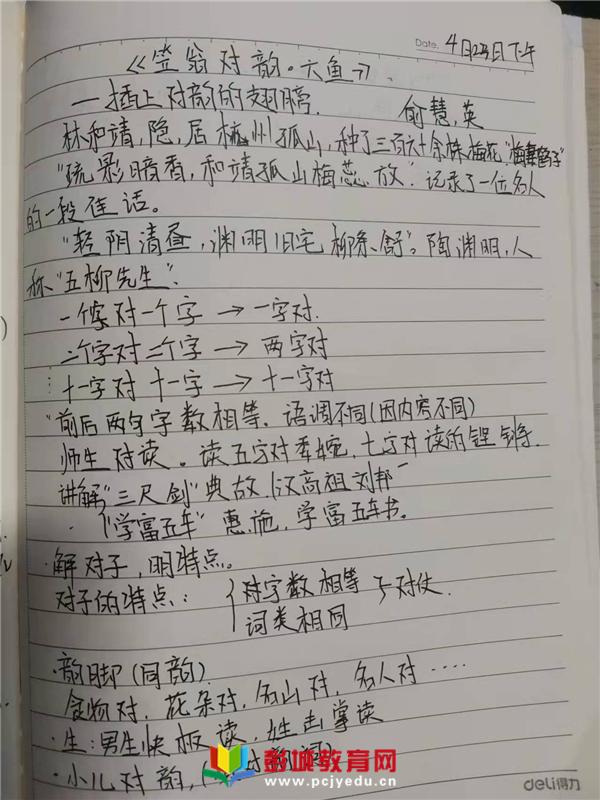 Date. 4月23日下午
《笠翁对韵·六鱼》
——插上对韵的翅膀. 俞慧英
林和靖,隐居杭州孤山,种了三百六十余株梅花,"梅妻鹤子"
"疏影暗香,和靖孤山梅蕊放".记录了一位名人
的一段佳话。
"轻阴清昼,渊明旧宅柳条舒"。陶渊明,人
称"五柳先生".
一个字对一个字 → 一字对.
二个字对二个字 → 两字对
十一字对十一字 → 十一字对
前后两句字数相等.语调不同(因内容不同)
师生对读。读五字对委婉,七字对读的铿锵.
讲解"三尺剑"典故,汉高祖刘邦
"学富五车" 惠施,学富五车书。
·解对子,明特点。
对子的特点: {对字数相等 词类相同 } 对仗.
·韵脚(同韵)
食物对,花朵对,名山对,名人对……
·生:男生快板读,姓击掌读
·小儿对韵,
彭城教育网
www.pcjyedu.cn
deli得力